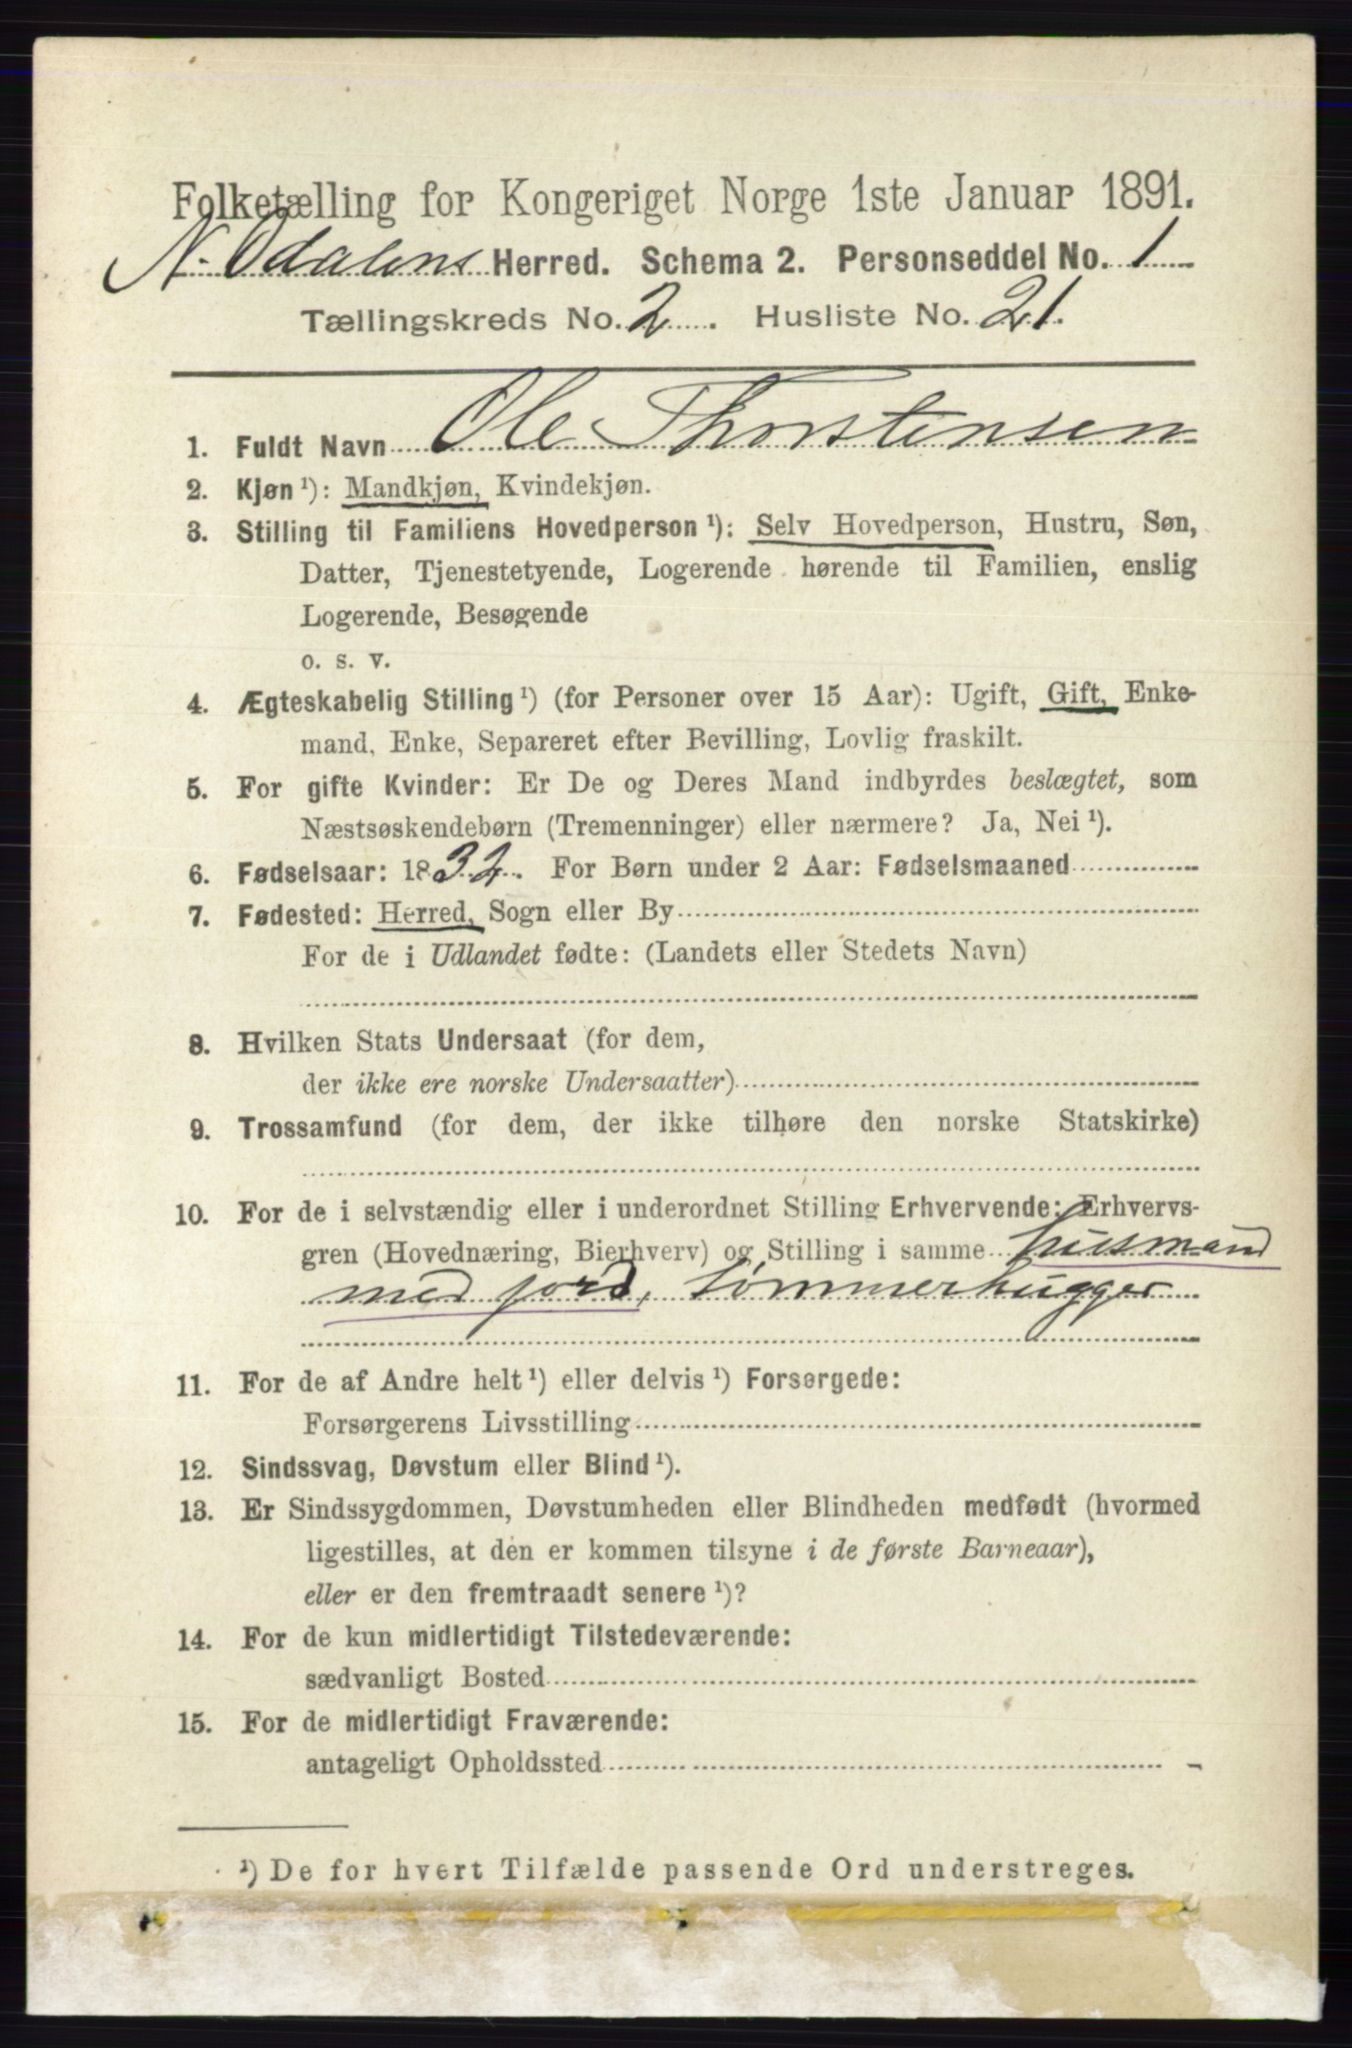 Folketælling for Kongeriget Norge 1ste Januar 1891.
N. Odalens Herred. Schema 2. Personseddel No. 1
Tællingskreds No. 2. Husliste No. 21.
1. Fuldt Navn Ole Thorstensen
2. Kjøn ¹): Mandkjøn, Kvindekjøn.
3. Stilling til Familiens Hovedperson ¹): Selv Hovedperson, Hustru, Søn,
Datter, Tjenestetyende, Logerende hørende til Familien, enslig
Logerende, Besøgende
o. s. v.
4. Ægteskabelig Stilling ¹) (for Personer over 15 Aar): Ugift, Gift, Enke-
mand, Enke, Separeret efter Bevilling, Lovlig fraskilt.
5. For gifte Kvinder: Er De og Deres Mand indbyrdes beslægtet, som
Næstsøskendebørn (Tremenninger) eller nærmere? Ja, Nei ¹).
6. Fødselsaar: 1832. For Børn under 2 Aar: Fødselsmaaned
7. Fødested: Herred, Sogn eller By
For de i Udlandet fødte: (Landets eller Stedets Navn)
8. Hvilken Stats Undersaat (for dem,
der ikke ere norske Undersaatter)
9. Trossamfund (for dem, der ikke tilhøre den norske Statskirke)
10. For de i selvstændig eller i underordnet Stilling Erhvervende: Erhvervs-
gren (Hovednæring, Bierhverv) og Stilling i samme husmand
med jord, tømmerhugger
11. For de af Andre helt ¹) eller delvis ¹) Forsørgede:
Forsørgerens Livsstilling
12. Sindssvag, Døvstum eller Blind ¹).
13. Er Sindssygdommen, Døvstumheden eller Blindheden medfødt (hvormed
ligestilles, at den er kommen tilsyne i de første Barneaar),
eller er den fremtraadt senere ¹)?
14. For de kun midlertidigt Tilstedeværende:
sædvanligt Bosted
15. For de midlertidigt Fraværende:
antageligt Opholdssted
¹) De for hvert Tilfælde passende Ord understreges.